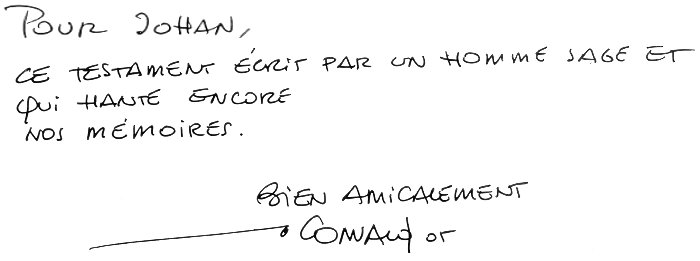 POUR JOHAN,
CE TESTAMENT ÉCRIT PAR UN HOMME SAGE ET
QUI HANTE ENCORE
NOS MÉMOIRES.
BIEN AMICALEMENT